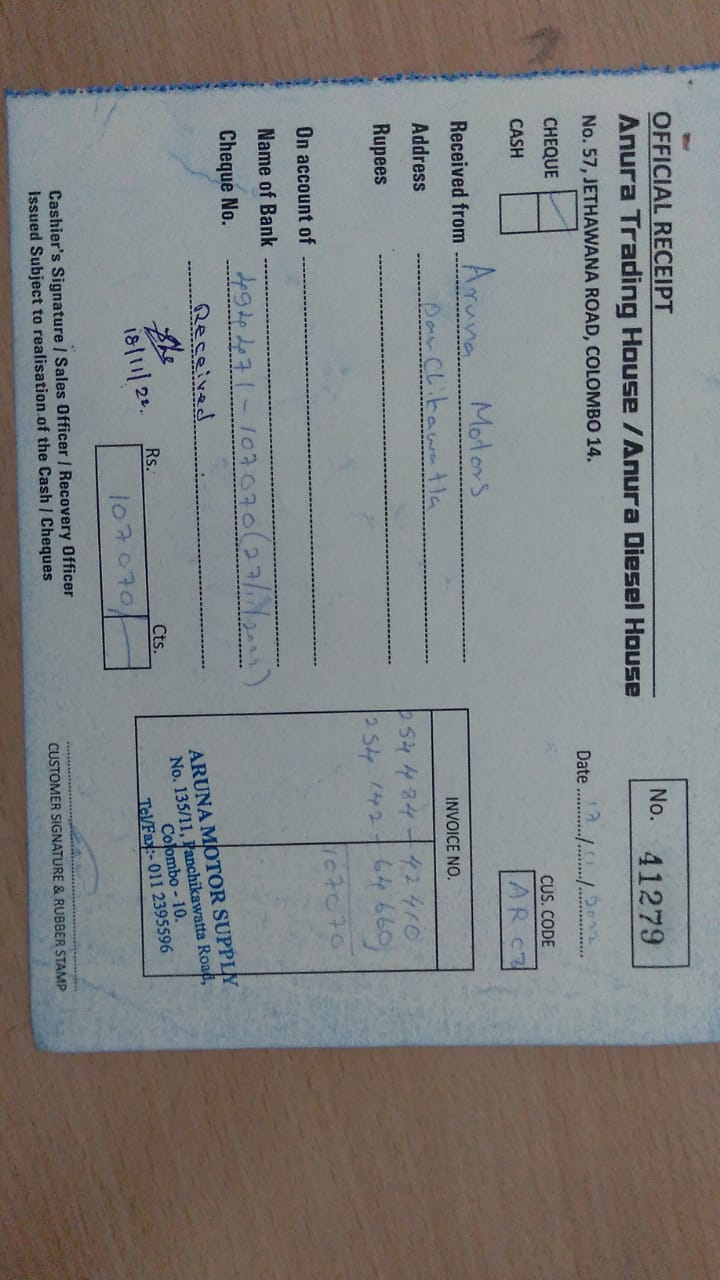 OFFICIAL RECEIPT
Anura Trading House / Anura Diesel House
No. 57, JETHAWANA ROAD, COLOMBO 14.
No. 41279
Date 17/11/2022
CHEQUE
CASH
CUS. CODE
Received from Aruna Motors
Address Panchikawatta
Rupees
On account of
Name of Bank
Cheque No. 494471-107070(27/11/2022)
Received
18/11/22.
Rs. Cts.
107070/-
INVOICE NO.
254484-42410
254142-64660
107070
ARUNA MOTOR SUPPLY
No. 135/11, Panchikawatta Road,
Colombo - 10.
Tel/Fax:- 011 2395596
Cashier's Signature / Sales Officer / Recovery Officer
Issued Subject to realisation of the Cash / Cheques
CUSTOMER SIGNATURE & RUBBER STAMP